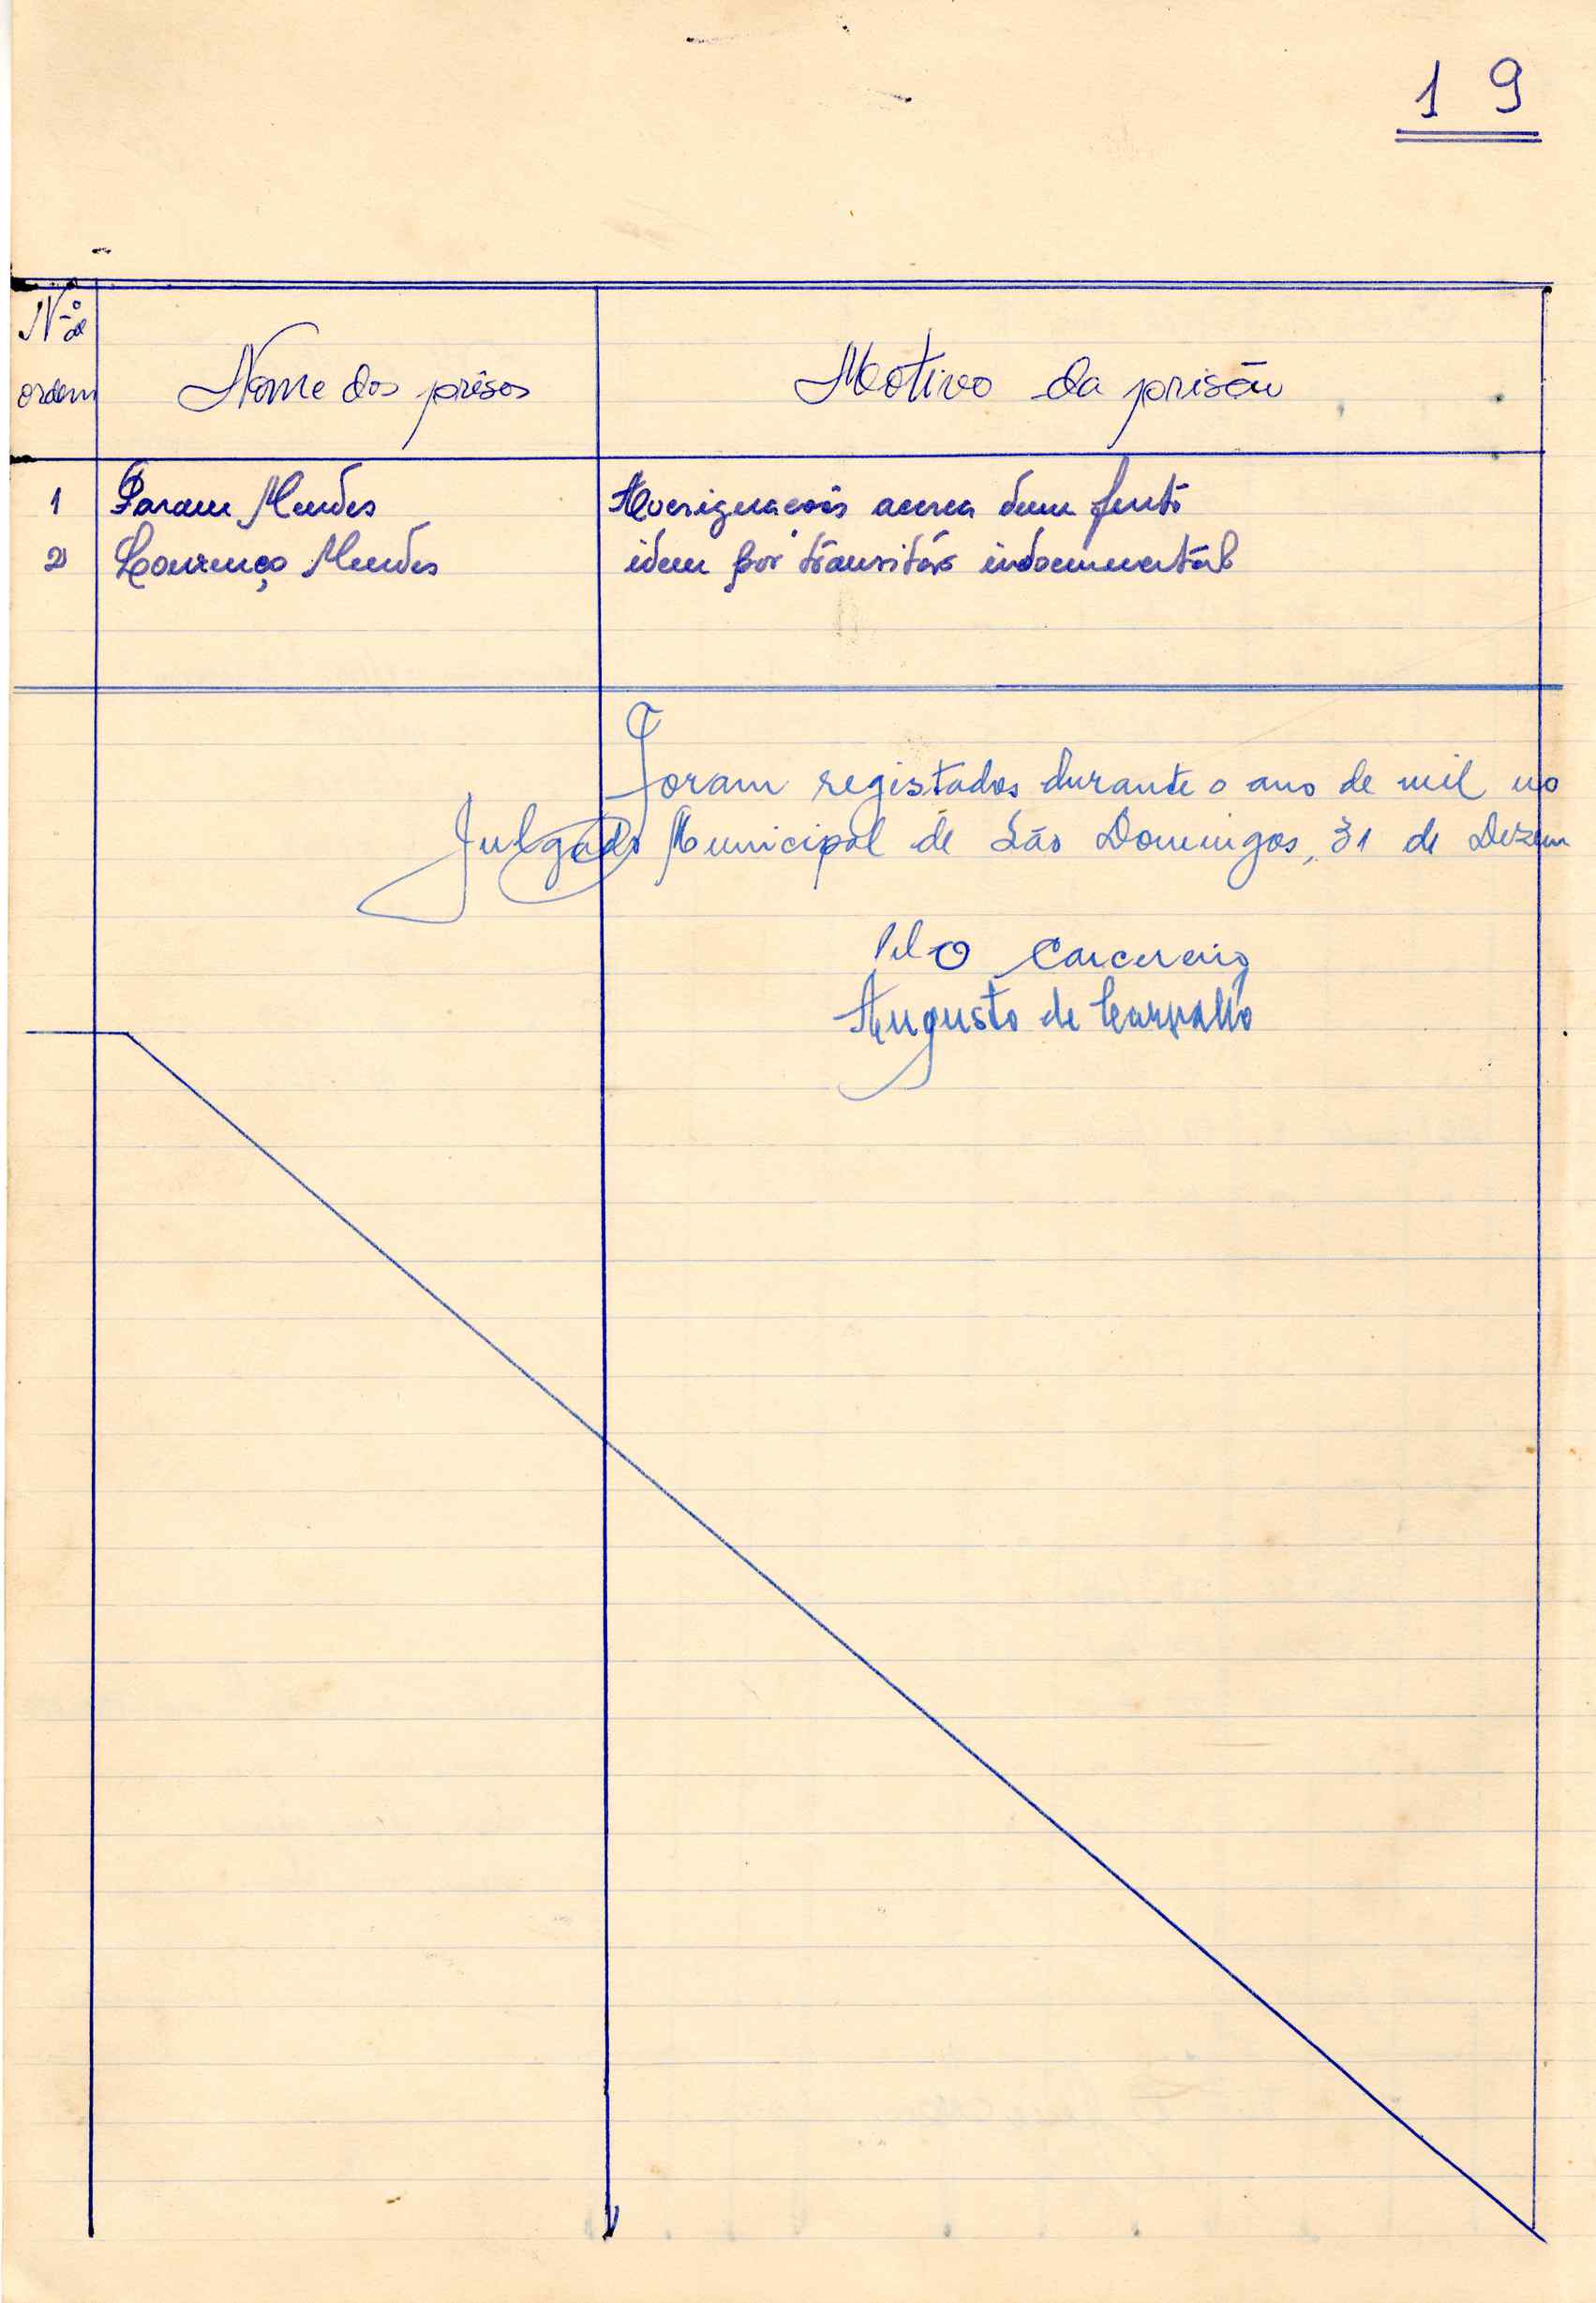 19
Nº de
ordem
Nome dos prêsos
Motivo da prisão
1 Param Mendes Averiguações acerca dum furto
2 Lourenço Mendes idem por transitár indocumentál
Foram registados durante o ano de mil no
Julgado Municipal de São Domingos, 31 de Dezem
Pelo Carcereiro
Augusto de Carvalho